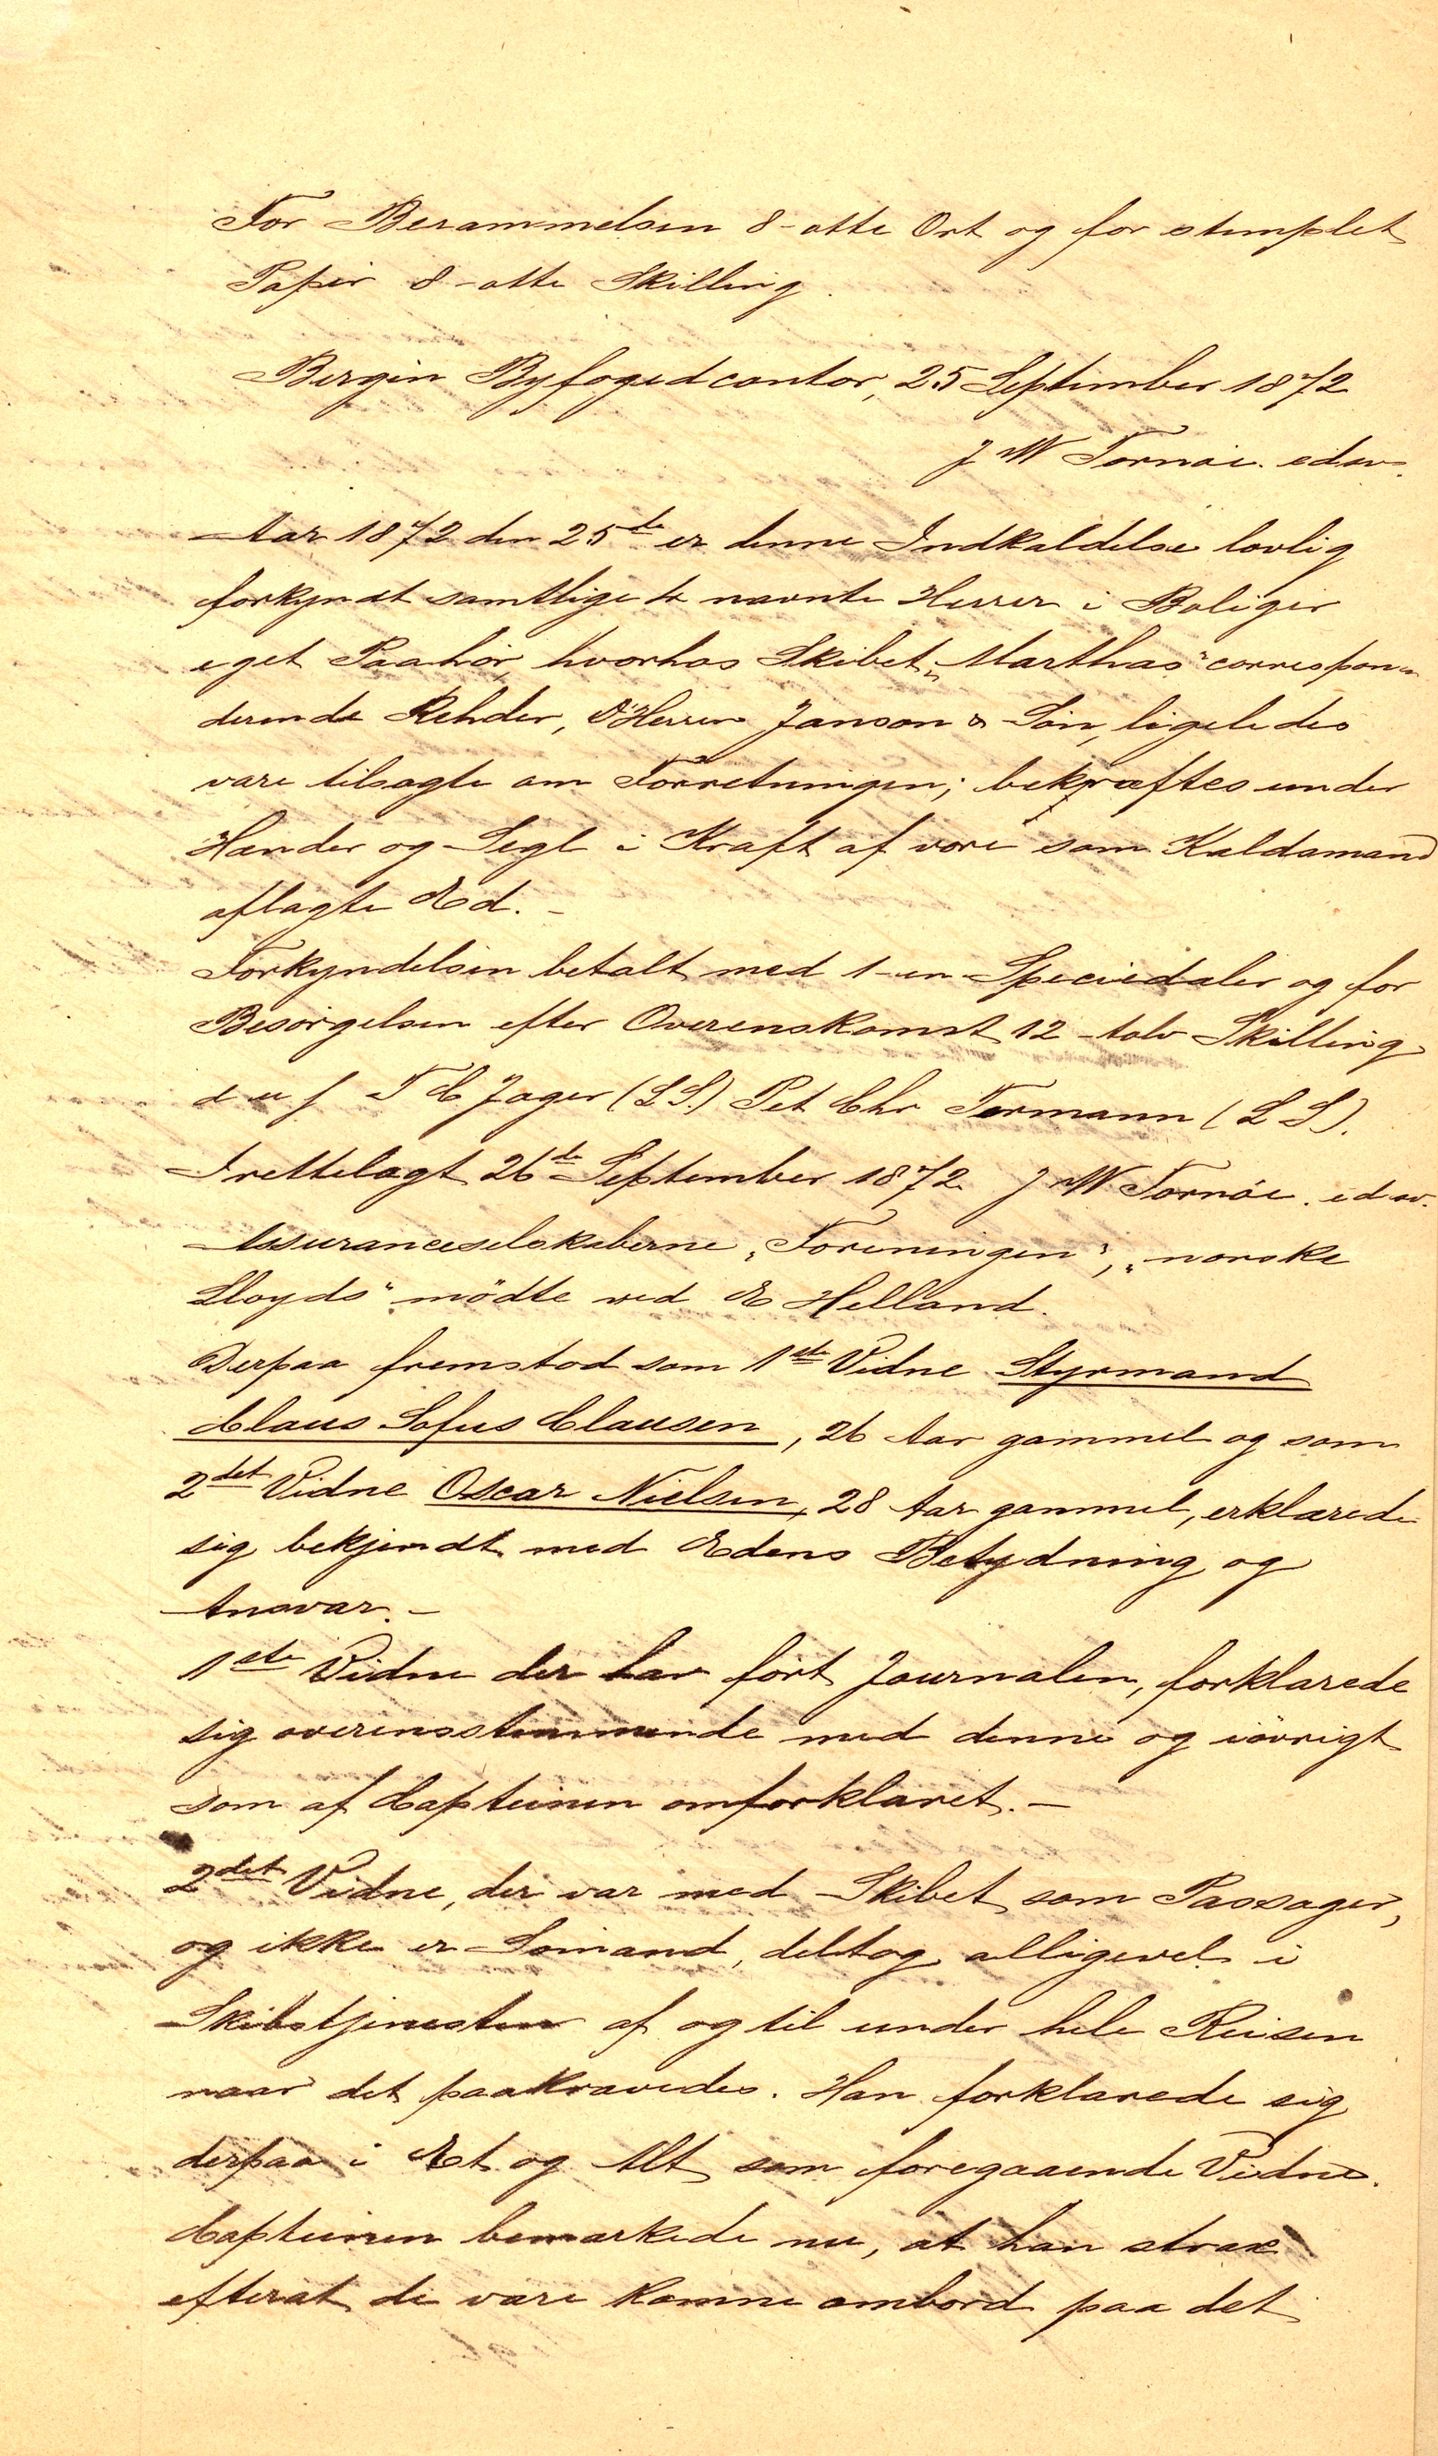 For Berammelsen 8-otte Ort og for stemplet
Papir 8-otte Skilling.
Bergen Byfogedcontor, 25 September 1872
J W Tornöe. edsv.
Aar 1872 den 25de er denne Indkaldelse lovlig
forkyndt samtlige 4 nævnte Herrer i Boliger
eget Paahör, hvorhos Skibet „Marthas" correspon-
derende Rehder, D'Herrer Janson & Sön, ligeledes
vare tilsagte om Forretningen; bekræftes under
Hænder og Segl i Kraft af vore som Kaldsmænd
aflagte Ed. —
Forkyndelsen betalt med 1-en Speciedaler og for
Besörgelsen efter Overenskomst 12-tolv Skilling
d u s T C Jager (L S.) Pet Chr Formann (L S).
Irettelagt 26de September 1872 J W Tornöe. edsv.
Assuranceselskaberne „Foreningen", „norske
Lloyds" mödte ved E Helland.
Derpaa fremstod som 1ste Vidne Styrmand
Claus Sofus Clausen, 26 Aar gammel og som
2det Vidne Oscar Nielsen, 28 Aar gammel, erklærede
sig bekjendt med Edens Betydning og
Ansvar. —
1ste Vidne der har fört Journalen, forklarede
sig overensstemmende med denne og iövrigt
som af Capteinen omforklaret. —
2det Vidne, der var med Skibet som Passager,
og ikke er Sömand, deltog alligevel i
Skibstjenesten af og til under hele Reisen
naar det paakrævedes. Han forklarede sig
derpaa i Et og Alt som foregaaende Vidne.
Capteinen bemærkede nu, at han strax
efterat de vare komne ombord paa det